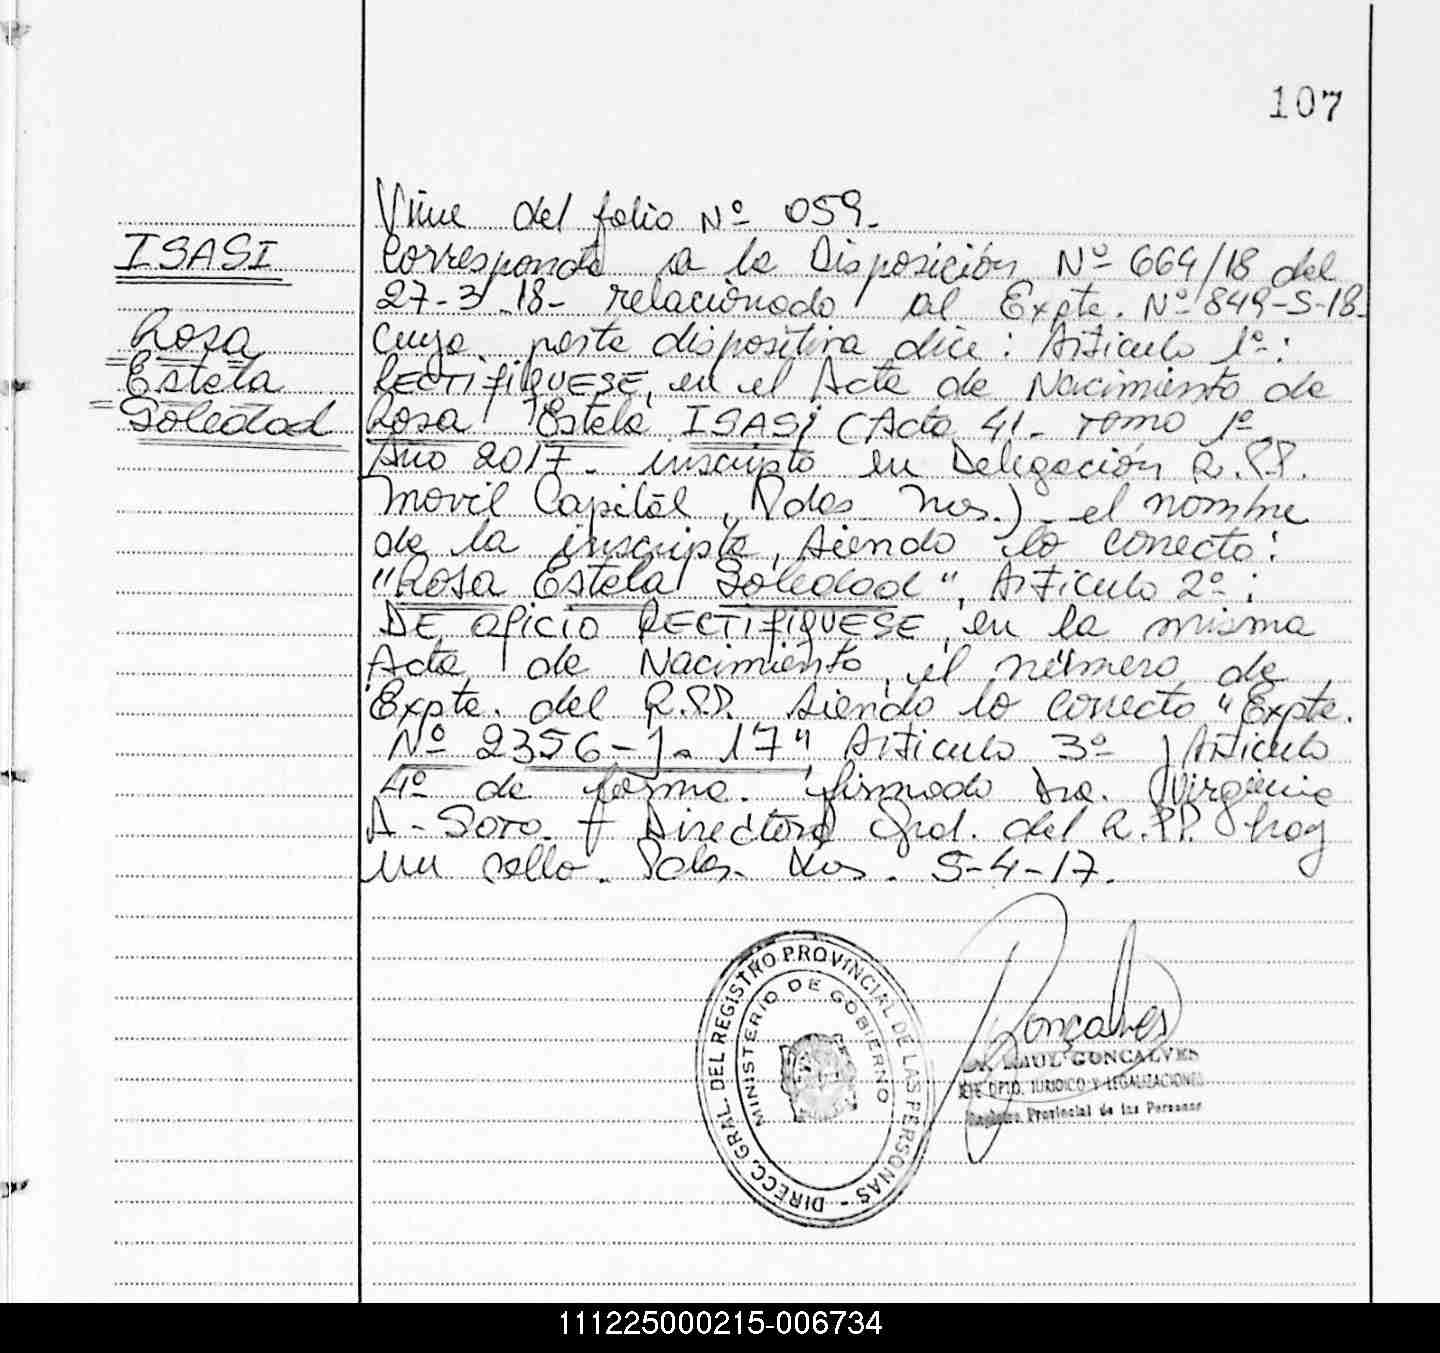 107
ISASI
Rosa
Estela
Soledad
Viene del folio Nº 059.-
Corresponde a la Disposición Nº 664/18 del
27-3-18- relacionado al Expte. Nº 849-S-18-
cuya parte dispositiva dice: Artículo 1º-:
RECTIFIQUESE, en el Acta de Nacimiento de
Rosa Estela ISASI (Acta 41- Tomo 1º
Año 2017- inscripta en Delegación R.P.P.
Movil Capital, Pdas. Mnes.)- el nombre
de la inscripta, siendo lo correcto:
"Rosa Estela Soledad", Artículo 2º-:
DE OFICIO RECTIFIQUESE, en la misma
Acta de Nacimiento, el número de
Expte. del R.P.P. siendo lo correcto "Expte.
Nº 2356-J-17", Artículo 3º y Artículo
4º de forma. firmado Dra. Virginia
A- Soto. - Directora Gral. del R.P.P. hay
un sello. Pdas. Mnes. 5-4-17.
DIRECC. GRAL. DEL REGISTRO PROVINCIAL DE LAS PERSONAS -
MINISTERIO DE GOBIERNO
Goncalves
RAUL GONCALVES
JEFE DPTO. JURIDICO Y LEGALIZACIONES
Registro Provincial de las Personas
111225000215-006734